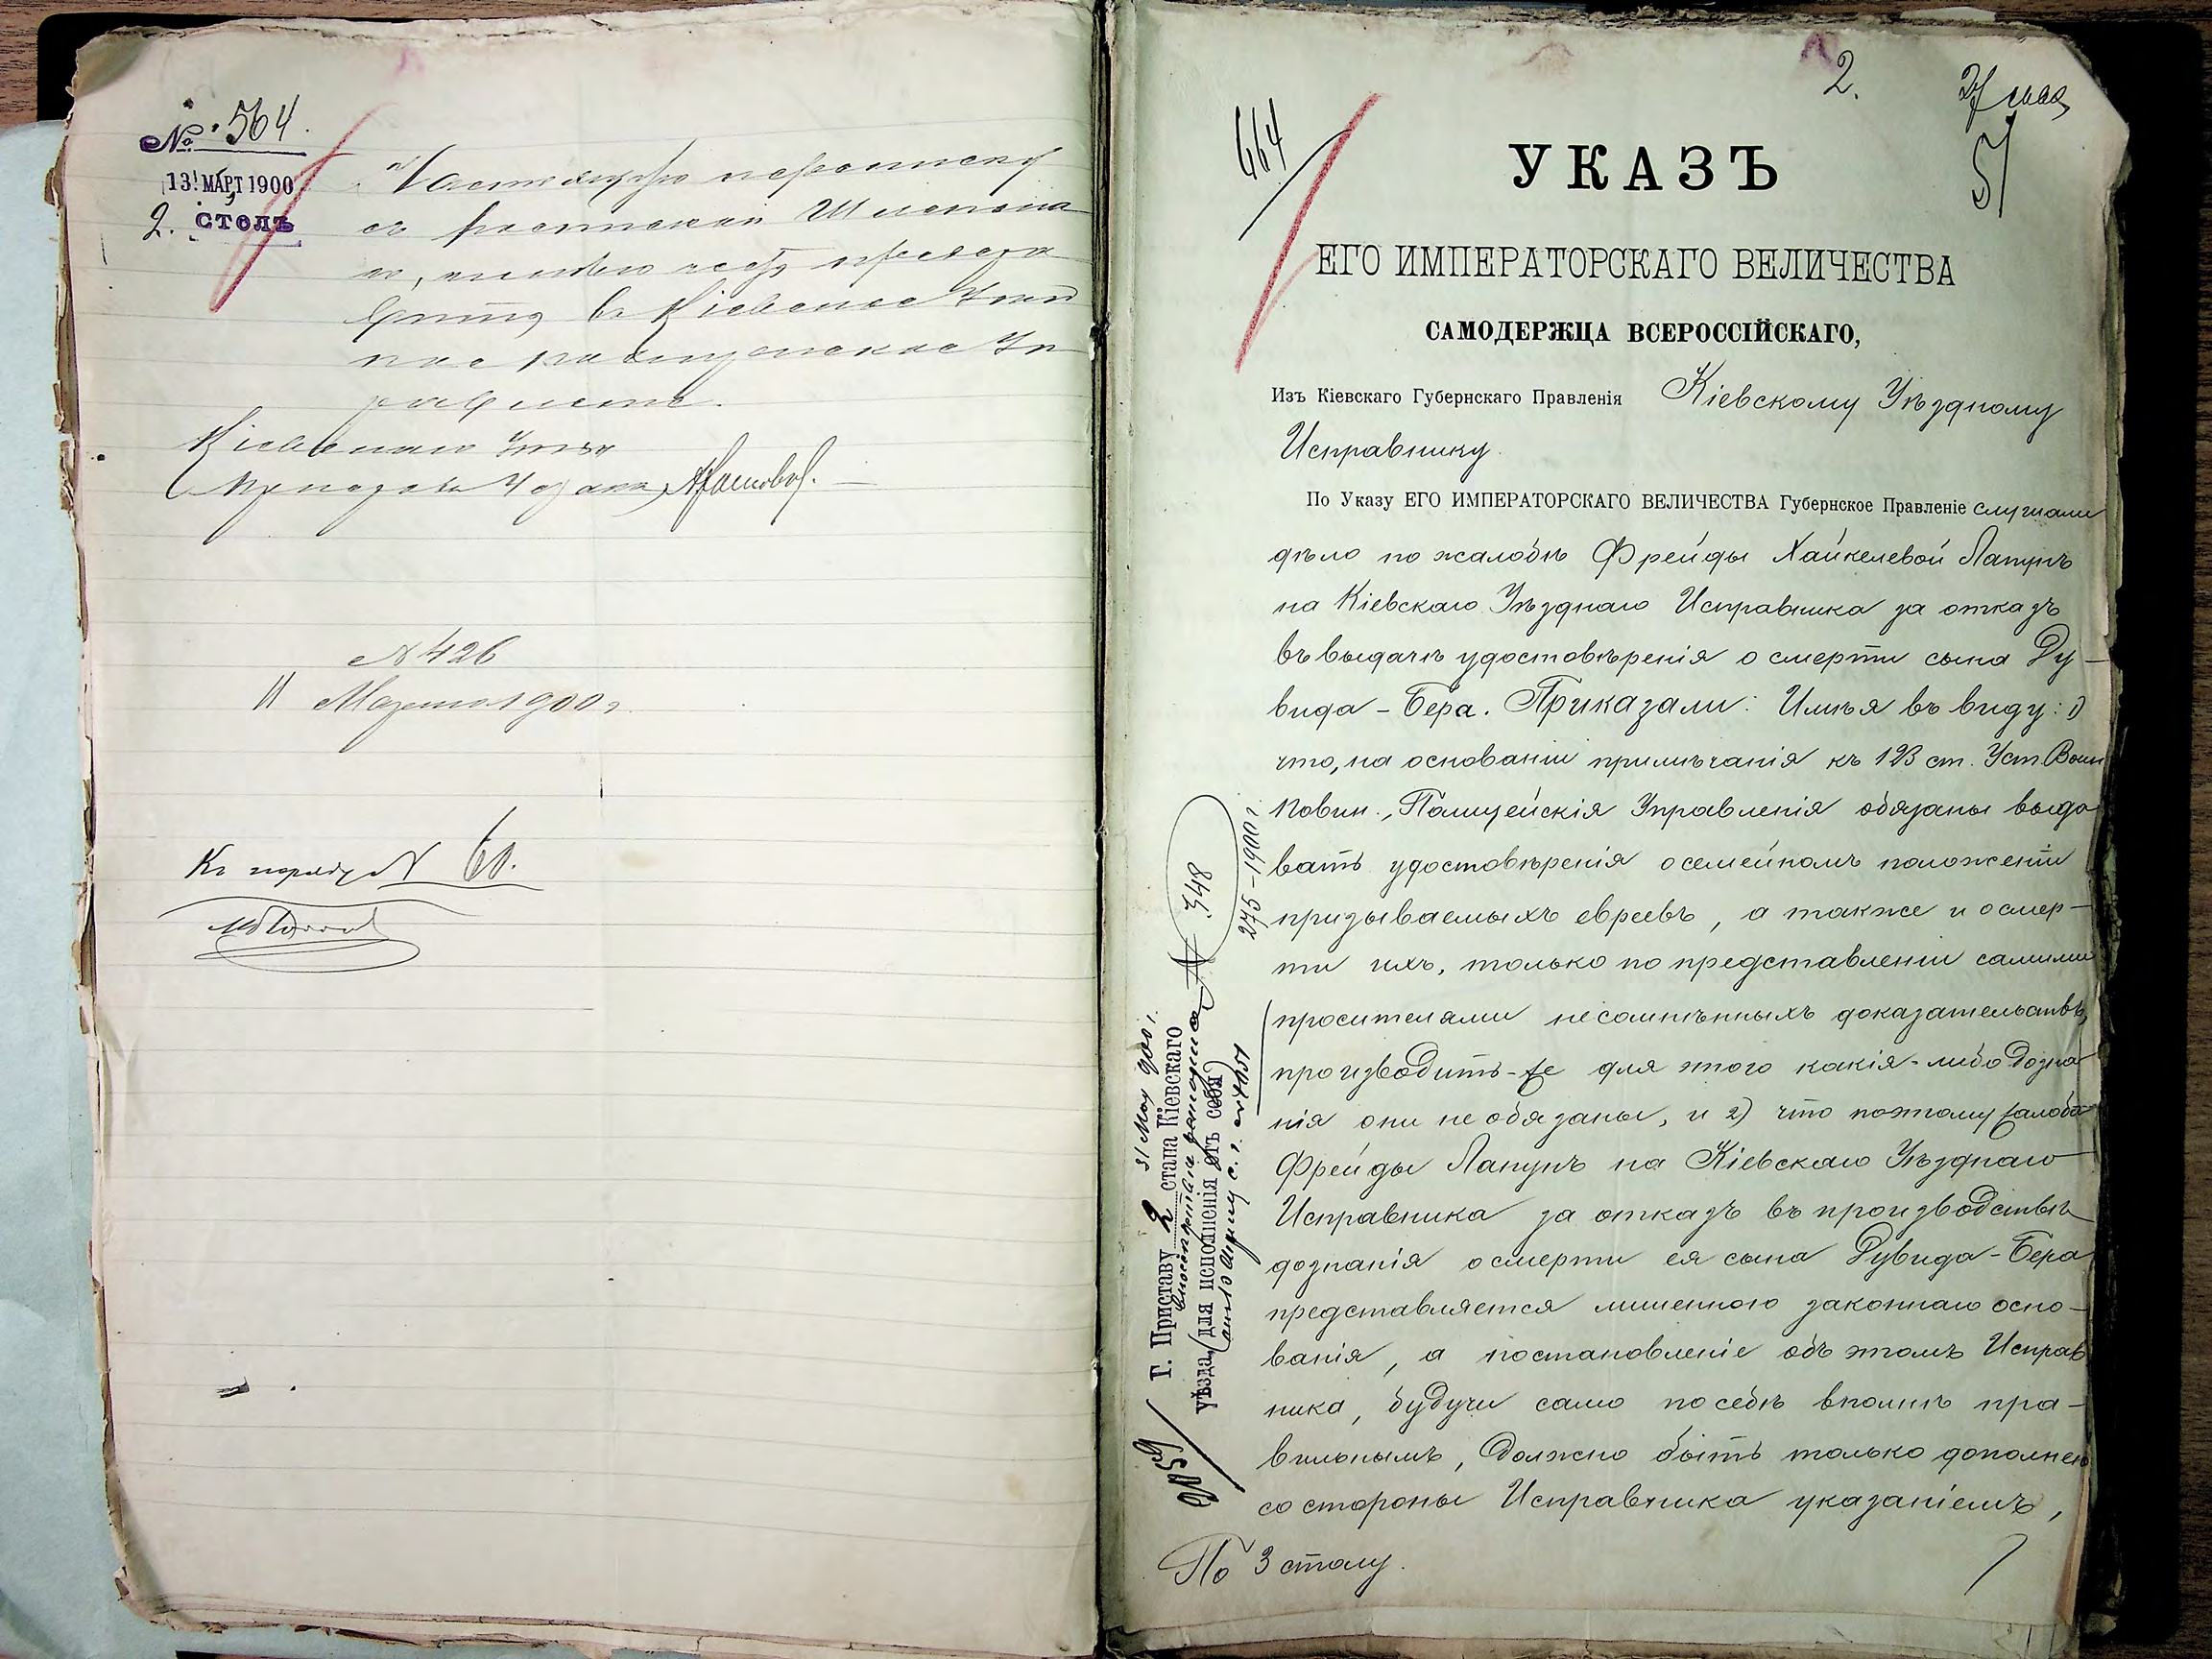 № 564.
13 МАРТ 1900
2. СТОЛЪ
Настоящую переписку
съ роспискою
, имѣю честь представ
въ Кіевское Уѣзд
ное Полицейское Уп
равленіе.
Кіевскаго Уѣзда
№ 426
11 Марта 1900 г.
Къ наряду № 60.
2.
27 мая
51
664
УКАЗЪ
ЕГО ИМПЕРАТОРСКАГО ВЕЛИЧЕСТВА
САМОДЕРЖЦА ВСЕРОССІЙСКАГО,
Изъ Кіевскаго Губернскаго Правленія Кіевскому Уѣздному
Исправнику.
По Указу ЕГО ИМПЕРАТОРСКАГО ВЕЛИЧЕСТВА Губернское Правленіе слушали
дѣло по жалобѣ Фрейды Хайкелевой Лапунъ
на Кіевскаго Уѣзднаго Исправника за отказъ
въ выдачѣ удостовѣренія о смерти сына Ру-
вида-Бера. Приказали: Имѣя въ виду: 1)
что, на основаніи примѣчанія къ 123 ст. Уст. Воин
Повин., Полицейскія Управленія обязаны выда
вать удостовѣренія о семейномъ положеніи
призываемыхъ евреевъ, а также и о смер-
ти ихъ, только по представленіи самими
просителями несомнѣнныхъ доказательствъ,
производить-же для этого какія-либо дозна
нія они не обязаны, и 2) что поэтому жалоба
Фрейды Лапунъ на Кіевскаго Уѣзднаго
Исправника за отказъ въ производствѣ
дознанія о смерти ея сына Рувида-Бера
представляется лишенною законнаго осно-
ванія, а постановленіе объ этомъ Исправ
ника, будучи само по себѣ вполнѣ пра-
вильнымъ, должно быть только дополнено
со стороны Исправника указаніемъ,
По 3 столу.
№ 348
275-1900 г.
31 Мая 900 г.
Г. Приставу 2 стана Кіевскаго
уѣзда, для исполненія отъ себя